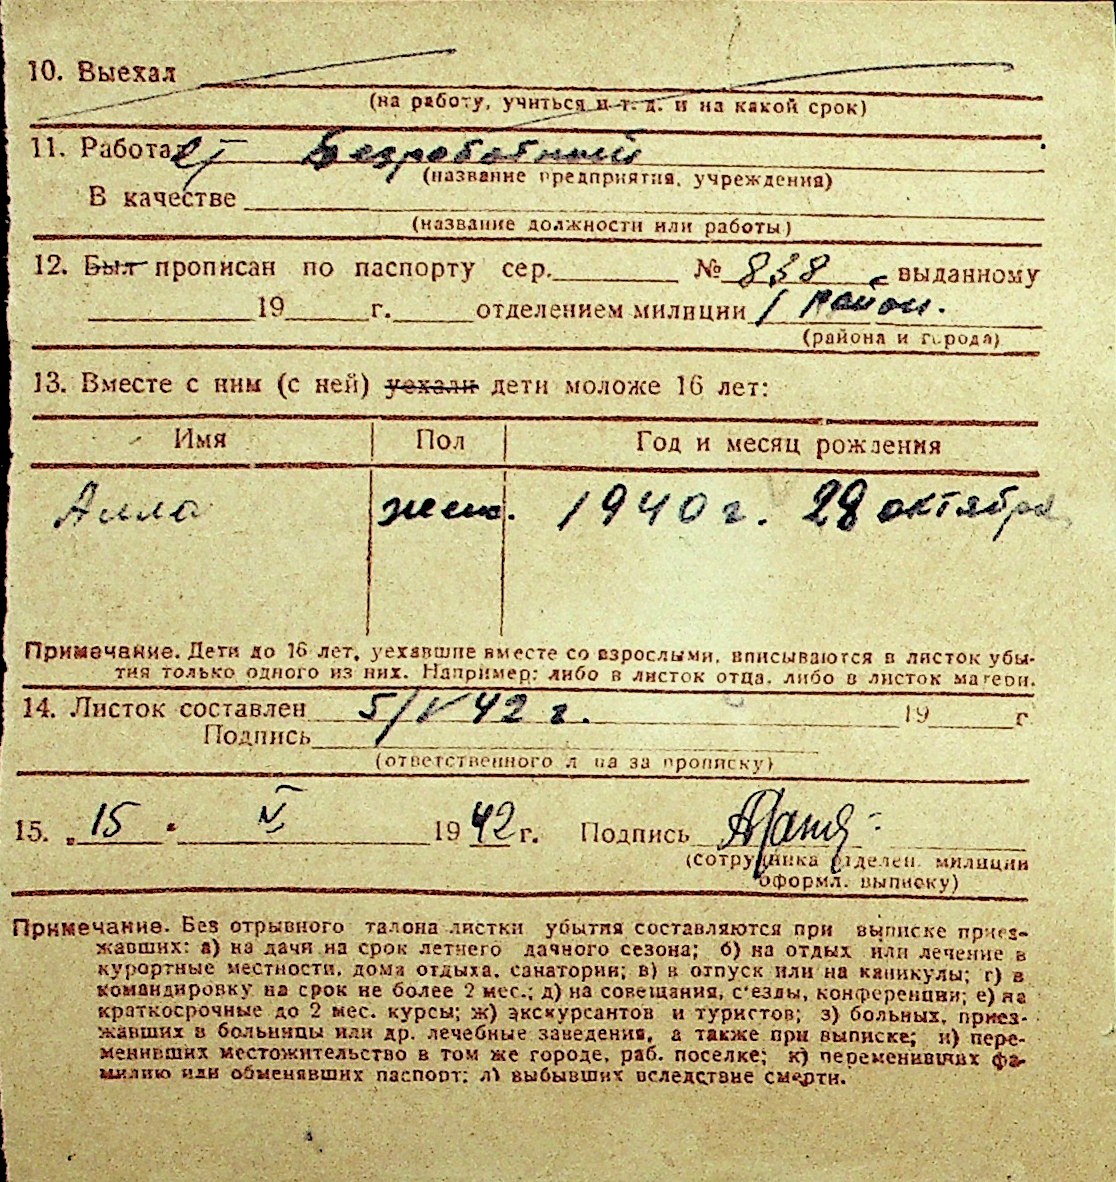 10. Выехал
(на работу, учиться и т. д. и на какой срок)
11. Работает Безработный
(название предприятия, учреждения)
В качестве
(название должности или работы)
12. Был прописан по паспорту сер. № 838 выданному
19 г. отделением милиции 1 район.
(района и города)
13. Вместе с ним (с ней) уехали дети моложе 16 лет:
Имя Пол Год и месяц рождения
Алла жен. 1940 г. 28 октября
Примечание. Дети до 16 лет, уехавшие вместе со взрослыми, вписываются в листок убы-
тия только одного из них. Например: либо в листок отца, либо в листок матери.
14. Листок составлен 5/V 42 г. 19 г
Подпись
(ответственного лица за прописку)
15. „15 " V 1942 г. Подпись
(сотрудника отделен. милиции
оформл. выписку)
Примечание. Без отрывного талона листки убытия составляются при выписке приез-
жавших: а) на дачи на срок летнего дачного сезона; б) на отдых или лечение в
курортные местности, дома отдыха, санатории; в) в отпуск или на каникулы; г) в
командировку на срок не более 2 мес.; д) на совещания, с'езды, конференции; е) на
краткосрочные до 2 мес. курсы; ж) экскурсантов и туристов; з) больных, приез-
жавших в больницы или др. лечебные заведения, а также при выписке; и) пере-
менивших местожительство в том же городе, раб. поселке; к) переменивших фа-
милию или обменявших паспорт; л) выбывших вследствие смерти.